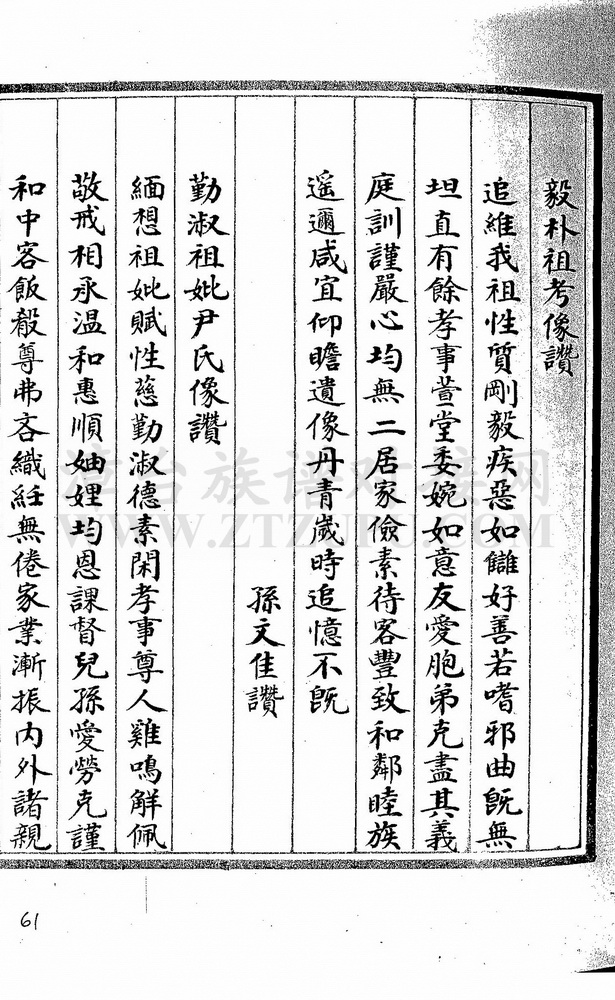 毅朴祖考像讚
追維我祖性質剛毅疾惡如讎好善若嗜邪曲旣無
坦直有餘孝事萱堂委婉如意友愛胞弟克盡其義
庭訓謹嚴心均無二居家儉素待客豐致和鄰睦族
遥邇咸宜仰瞻遺像丹青歲時追憶不旣
孫文佳讚
勤淑祖妣尹氏像讚
緬想祖妣賦性慈勤淑德素閑孝事尊人雞鳴觧佩
敬戒相承温和惠順妯娌均恩課督兒孫愛勞克謹
和中客飯殽尊弗吝織紝無倦家業漸振内外諸親
61
WWW.ZTZ